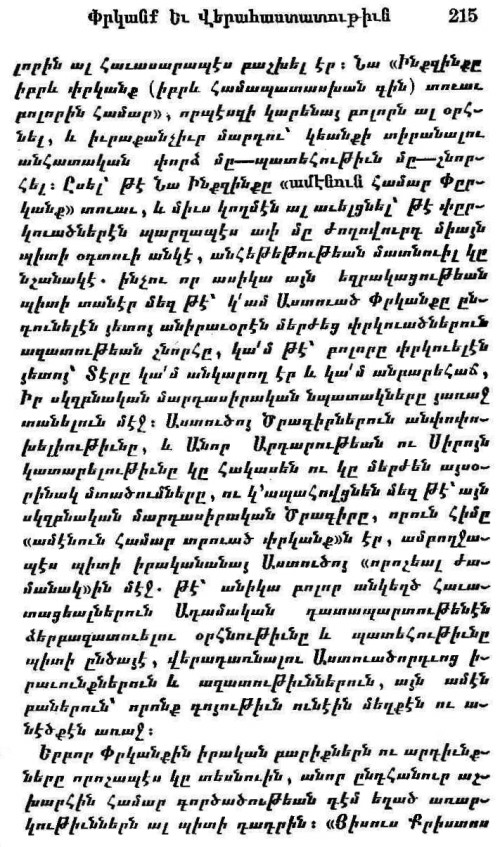 Փրկանք Եւ Վերահաստատութիւն 215
լորին ալ հաւասարապէս բաշխել էր։ Նա «Ինքզինքը
իբրև փրկանք (իբրև համապատասխան գին) տուաւ
բոլորին համար», որպէսզի կարենայ բոլորն ալ օրհ-
նել, և իւրաքանչիւր մարդու՝ կեանքի տիրանալու
անհատական փորձ մը—պատեհութիւն մը—շնոր-
հել։ Ըսել՝ թէ Նա Ինքզինքը «ամէնուն համար Փըր-
կանք» տուաւ, և միւս կողմէն ալ աւելցնել՝ թէ փըր-
կուածներէն պարզապէս ափ մը ժողովուրդ միայն
պիտի օգտուի անկէ, անհեթեթութեան մատնուիլ կը
նշանակէ. ինչու որ ասիկա այն եզրակացութեան
պիտի տանէր մեզ թէ՝ կ՛ամ Աստուած Փրկանքը ըն-
դունելէն յետոյ անիրաւօրէն մերժեց փրկուածներուն
ազատութեան շնորհը, կա՛մ թէ՝ բոլորը փրկուելէն
յետոյ՝ Տէրը կա՛մ անկարող էր և կա՛մ անբարեհաճ,
Իր սկզբնական մարդասիրական նպատակները յառաջ
տանելուն մէջ։ Աստուծոյ Ծրագիրներուն անփոփո-
խելիութիւնը, և Անոր Արդարութեան ու Սիրոյն
կատարելութիւնը կը հակասեն ու կը մերժեն այսօ-
րինակ մտածումները, ու կ՚ապահովցնեն մեզ թէ՝ այն
սկզբնական մարդասիրական Ծրագիրը, որուն հիմը
«ամէնուն համար տրուած փրկանք»ն էր, ամբողջա-
պէս պիտի իրականանայ Աստուծոյ «որոշեալ ժա-
մանակ»ին մէջ. թէ՝ անիկա բոլոր անկեղծ հաւա-
տացեալներուն Ադամական դատապարտութենէն
ձերբազատուելու օրհնութիւնը և պատեհութիւնը
պիտի ընծայէ, վերադառնալու Աստուածորդւոց ի-
րաւունքներուն և ազատութիւններուն, այն ամէն
բաներուն՝ որոնք գոյութիւն ունէին մեղքէն ու ա-
նէծքէն առաջ։
Երբոր Փրկանքին իրական բարիքներն ու արդիւնք-
ները որոշապէս կը տեսնուին, անոր ընդհանուր աշ-
խարհին համար գործածութեան դէմ եղած առար-
կութիւններն ալ պիտի դադրին։ «Յիսուս Քրիստոս